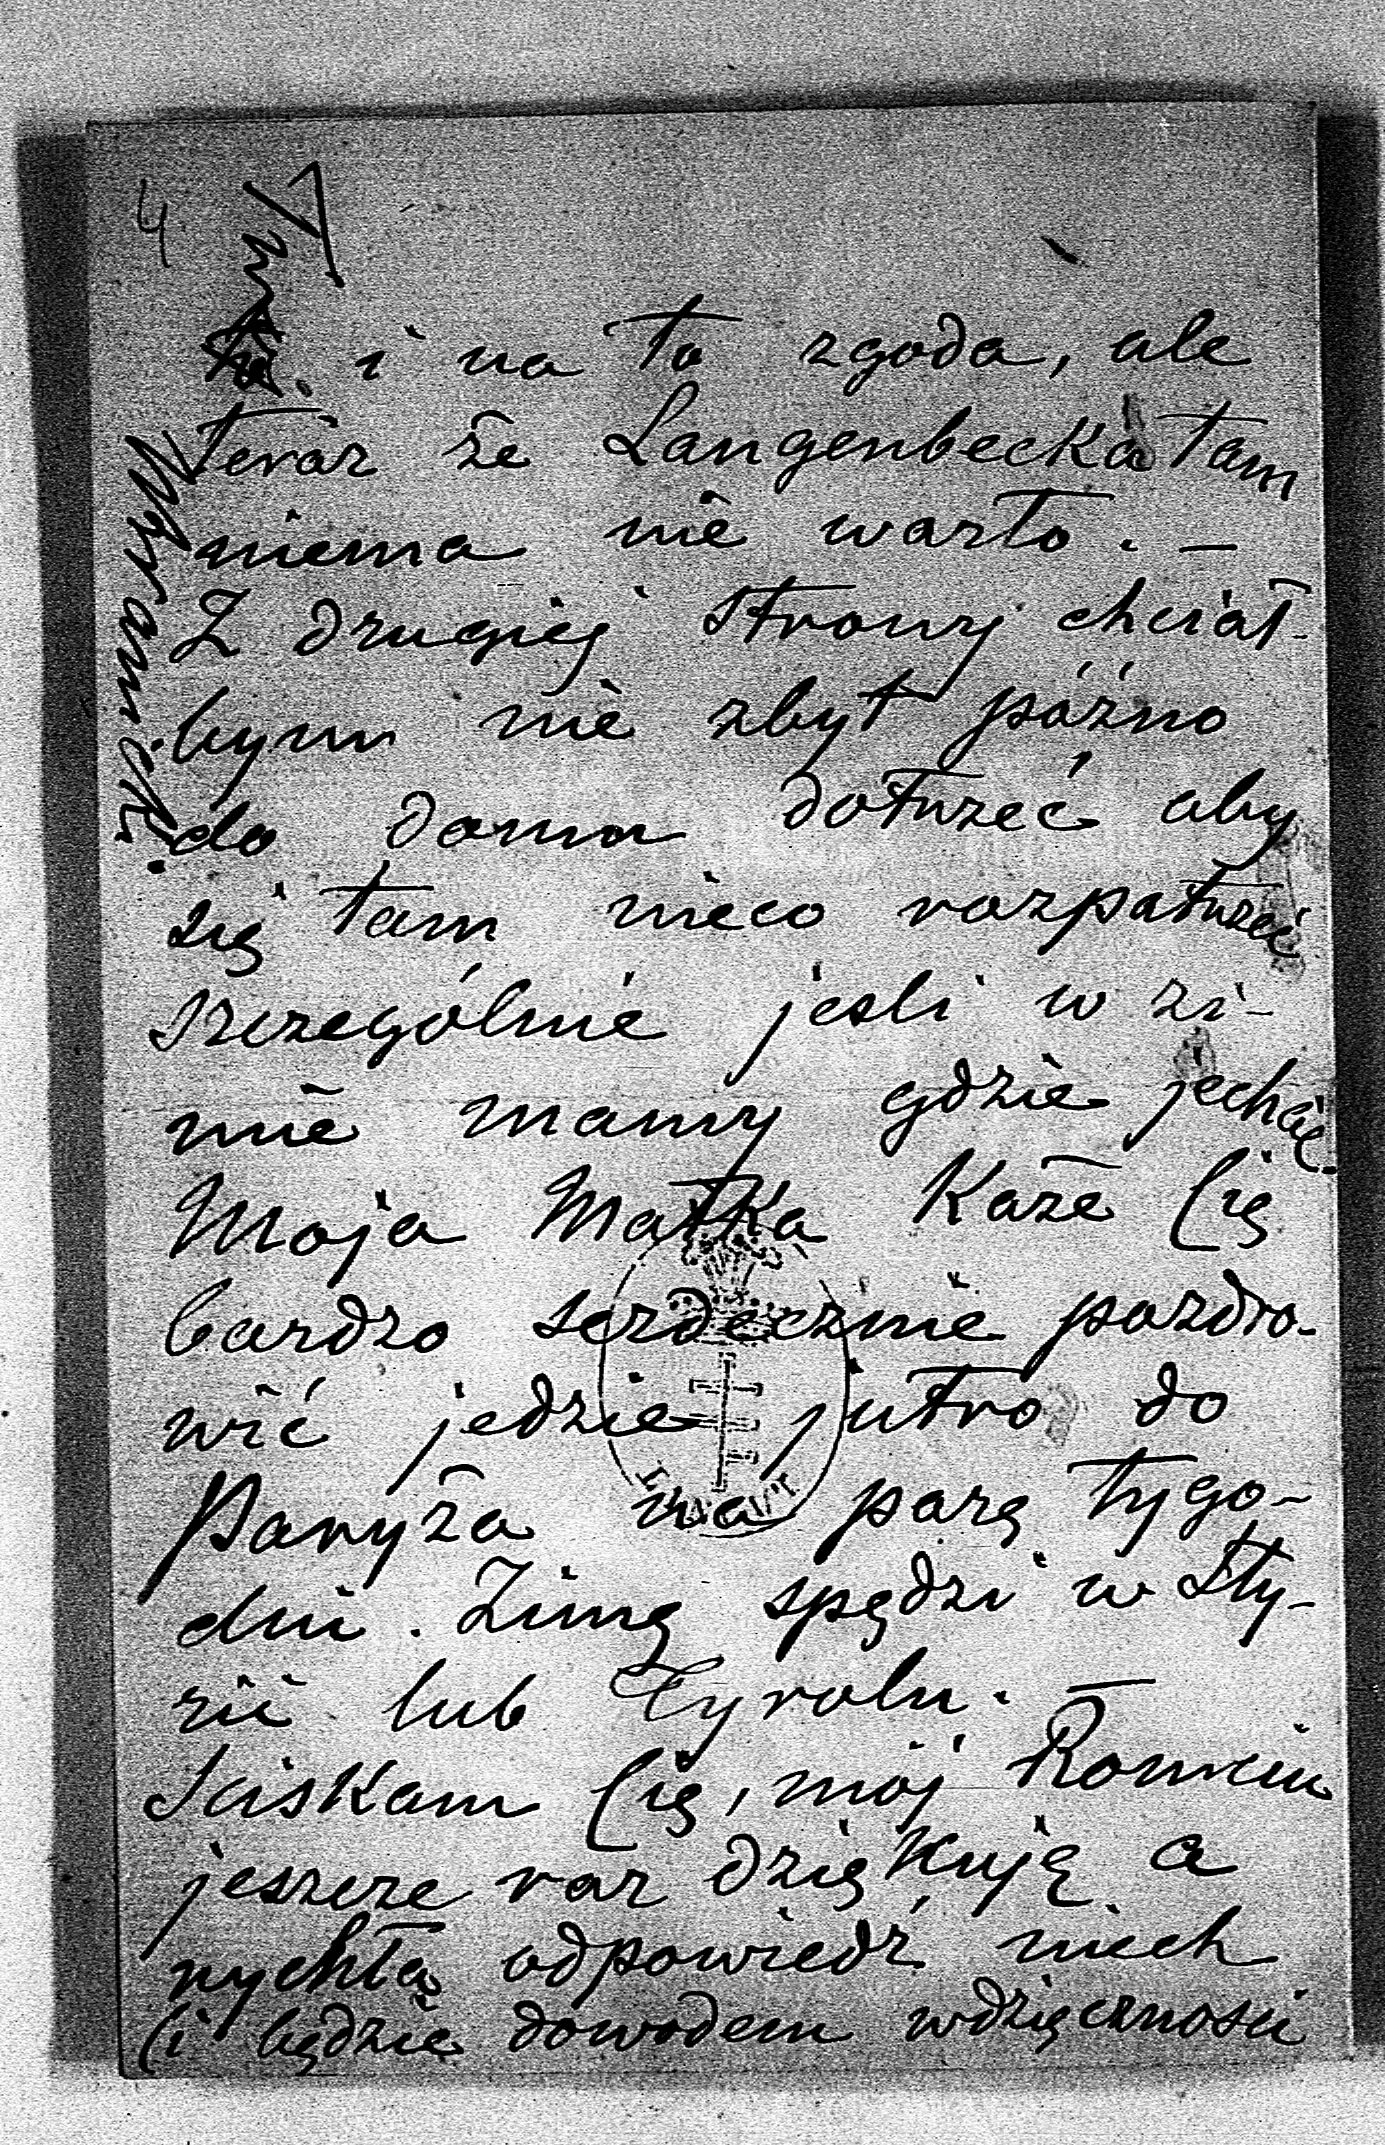 4
i na to zgoda, ale
teraz że Langenbecka tam
niema nie warto. –
Z drugiej strony chciał-
bym nie zbyt późno
do domu dotrzeć aby
się tam nieco rozpatrzeć
szczególnie jesli w zi-
mie mamy gdzie jechać.
Moja Matka Każe Cię
bardzo serdecznie pozdro-
wić jedzie jutro do
Paryża na parę tygo-
dni. Zimę spędzi w Sty-
rii lub Tyrolu.
Sciskam Cię, mój Romciu
jeszcze raz dziękuję a
rychła odpowiedź niech
Ci będzie dowodem wdzięczności